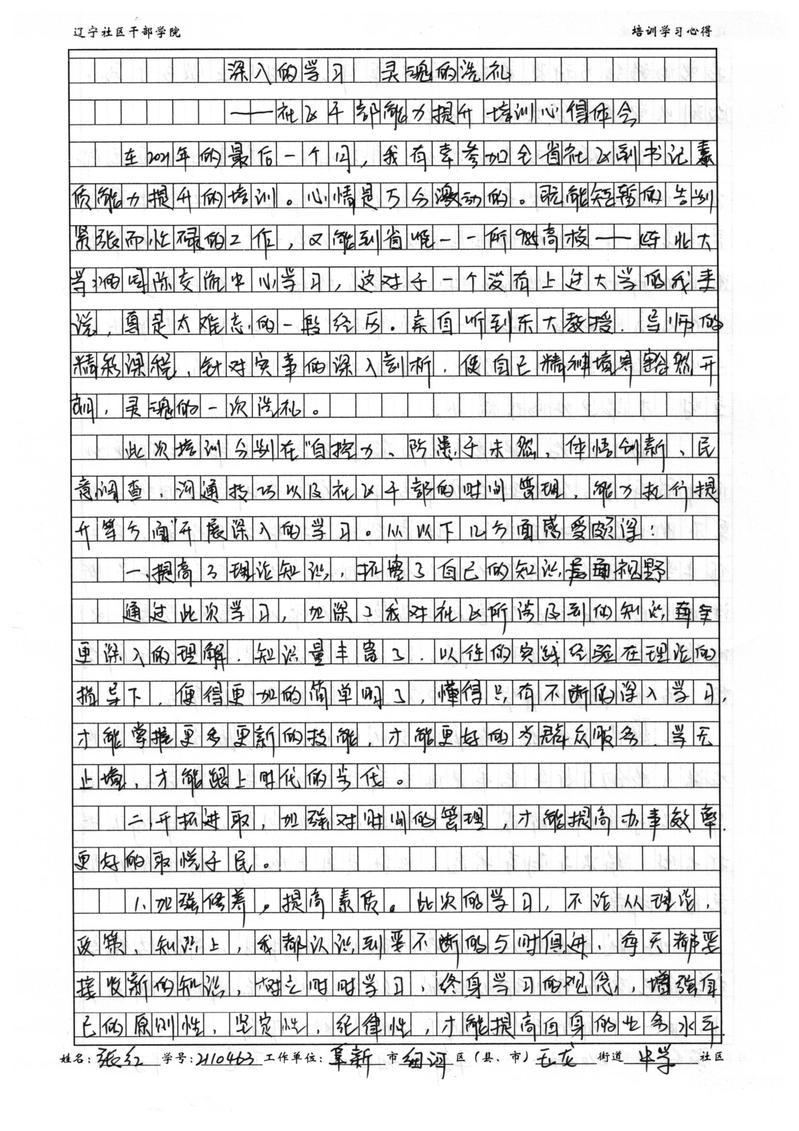 辽宁社区干部学院 培训学习心得
深入的学习 灵魂的洗礼
——社区干部能力提升培训心得体会
在2021年的最后一个月，我有幸参加全省社区副书记素
质能力提升的培训。心情是万分激动的。既能短暂的告别
紧张而忙碌的工作，又能到省唯一一所985高校——东北大
学的国际交流中心学习，这对于一个没有上过大学的我来
说，真是太难忘的一段经历。亲自听到东大教授、导师的
精彩课程，针对实事的深入剖析，使自己精神境界豁然开
朗，灵魂的一次洗礼。
此次培训分别在"自控力、防患于未然、体悟创新、民
意调查、沟通技巧以及社区干部的时间管理，能力执行提
升等方面"开展深入的学习。从以下几方面感受颇深：
一、提高了理论知识，拓宽了自己的知识层面视野
通过此次学习，加深了我对社区所涉及到的知识有
更深入的理解，知识量丰富了，以往的实践经验在理论的
指导下，使得更加的简单明了，懂得只有不断的深入学习，
才能掌握更多更新的技能，才能更好的为群众服务，学无
止境，才能跟上时代的步伐。
二、开拓进取，加强对时间的管理，才能提高办事效率，
更好的取悦于民。
1、加强修养。提高素质。此次的学习，不论从理论，
政策、知识上，我都认识到要不断的与时俱进，每天都要
接收新的知识，树立时时学习，终身学习的观念，增强自
己的原则性，坚定性，纪律性，才能提高自身的业务水平，
姓名：张红 学号：2110463 工作单位：阜新 市 细河 区（县、市） 玉龙 街道 中学 社区